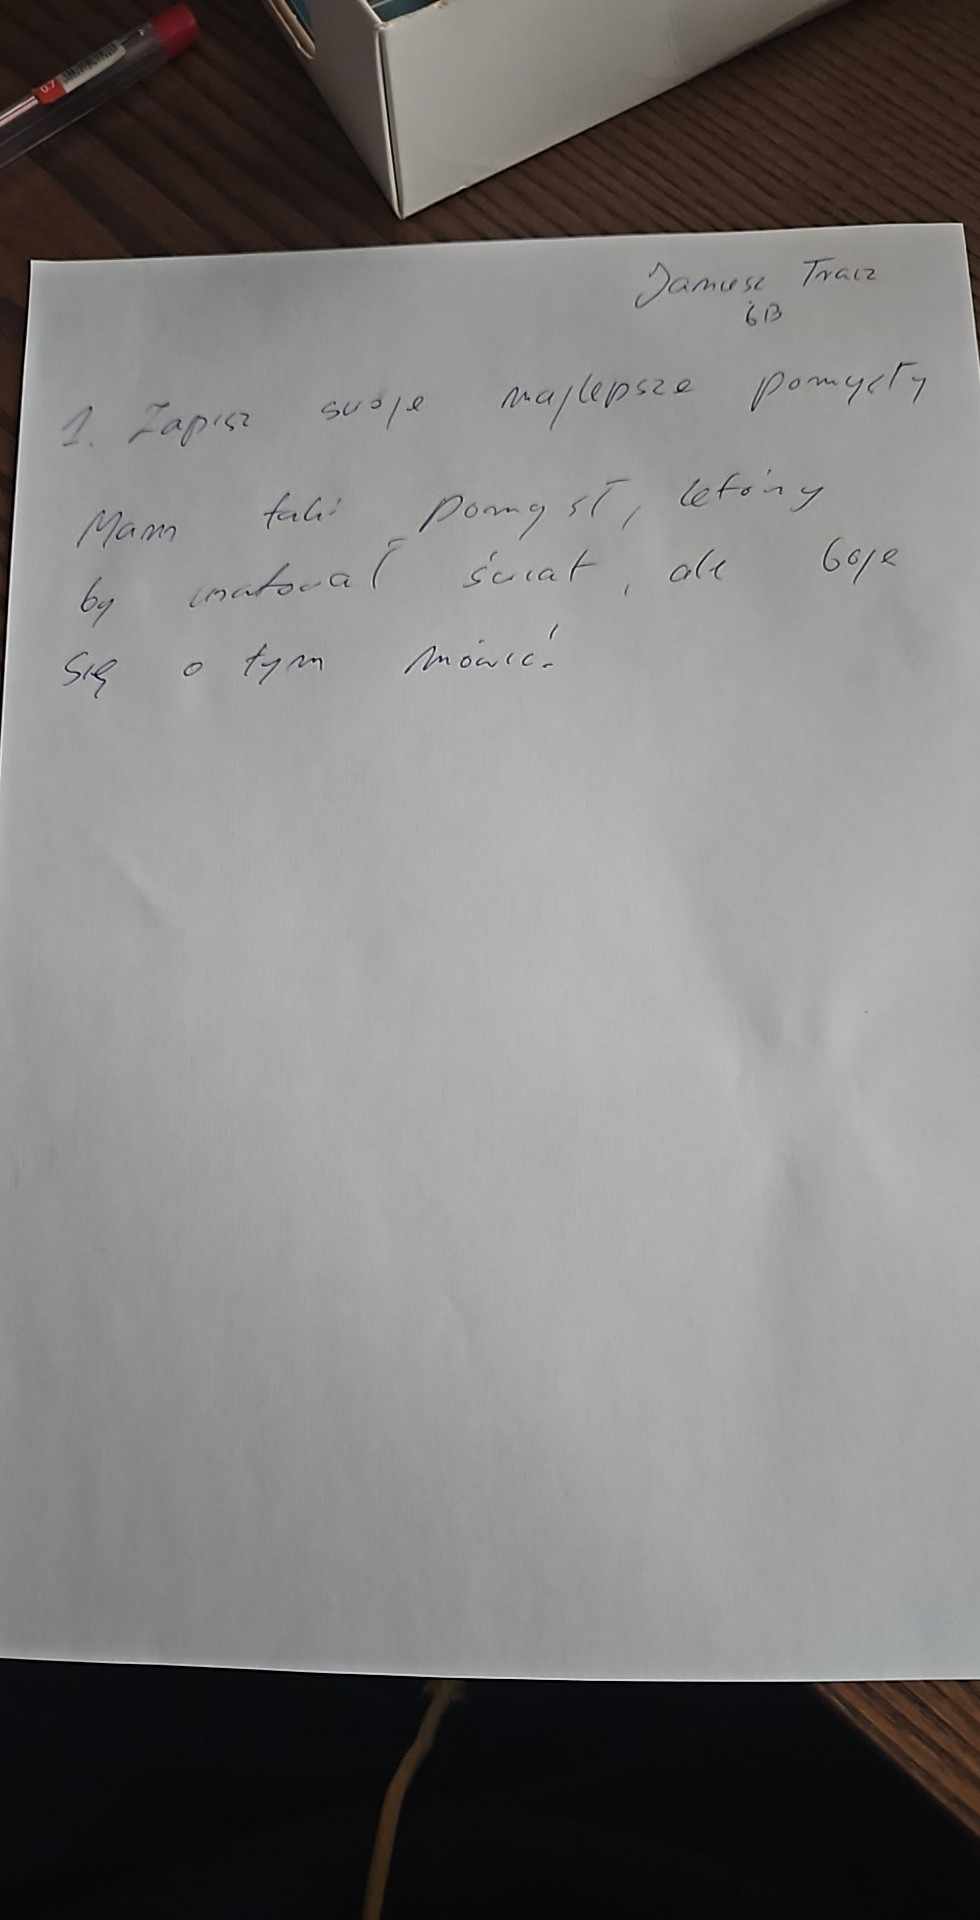 0.7
Janusz Tracz
6B
1. Zapisz swoje najlepsze pomysły
Mam taki pomysł, który
by uratował świat, ale boje
się o tym mówić.